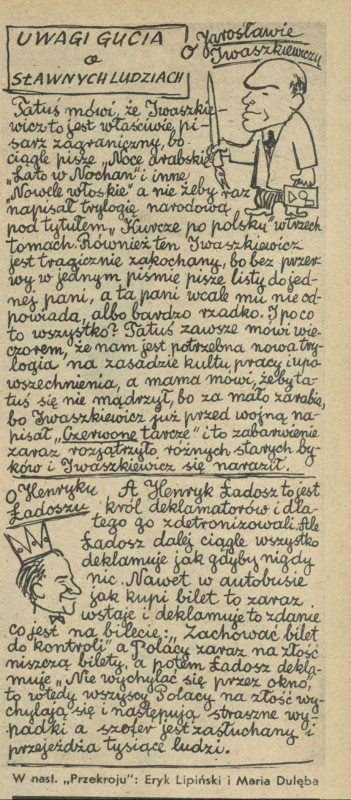 UWAGI GUCIA
o
SŁAWNYCH LUDZIACH
O Jarosławie
Iwaszkiewiczu
Tatuś mówi, że Iwaszkie-
wicz to jest właściwie, pi-
sarz zagraniczny, bo
ciągle pisze „Noce arabskie"
„Lato w Nochan" i inne
„Nowele włoskie" a nie żeby raz
napisał trylogię narodową
pod tytułem „Kurcze po polsku" w trzech
tomach. Również ten Iwaszkiewicz
jest tragicznie zakochany, bo bez przer
wy w jednym piśmie pisze listy do jed-
nej pani, a ta pani wcale mu nie od-
powiada, albo bardzo rzadko. I po co
to wszystko? Tatuś zawsze mówi wie-
czorem, że nam jest potrzebna nowa try-
logia na zasadzie kultu pracy i upo
wszechnienia, a mama mówi, żeby ta-
tuś się nie mądrzył, bo za mało zarabia,
bo Iwaszkiewicz już przed wojną na-
pisał „Czerwone tarcze" i to zabarwienie
zaraz rozjątrzyło różnych starych by-
ków i Iwaszkiewicz się naraził.
O Henryku
Ładoszu
A Henryk Ładosz to jest
król deklamatorów i dla-
tego go zdetronizowali. Ale
Ładosz dalej ciągle wszystko
deklamuje jak gdyby nigdy
nic. Nawet w autobusie
jak kupi bilet to zaraz
wstaje i deklamuje to zdanie
co jest na bilecie: „Zachować bilet
do kontroli" a Polacy zaraz na złość
niszczą bilety, a potem Ładosz dekla-
muje „Nie wychylać się przez okno",
to wtedy wszyscy Polacy na złość wy-
chylają się i następują straszne wy-
padki a szofer jest zasłuchany i
przejeżdża tysiące ludzi.
W nast. „Przekroju": Eryk Lipiński i Maria Dulęba